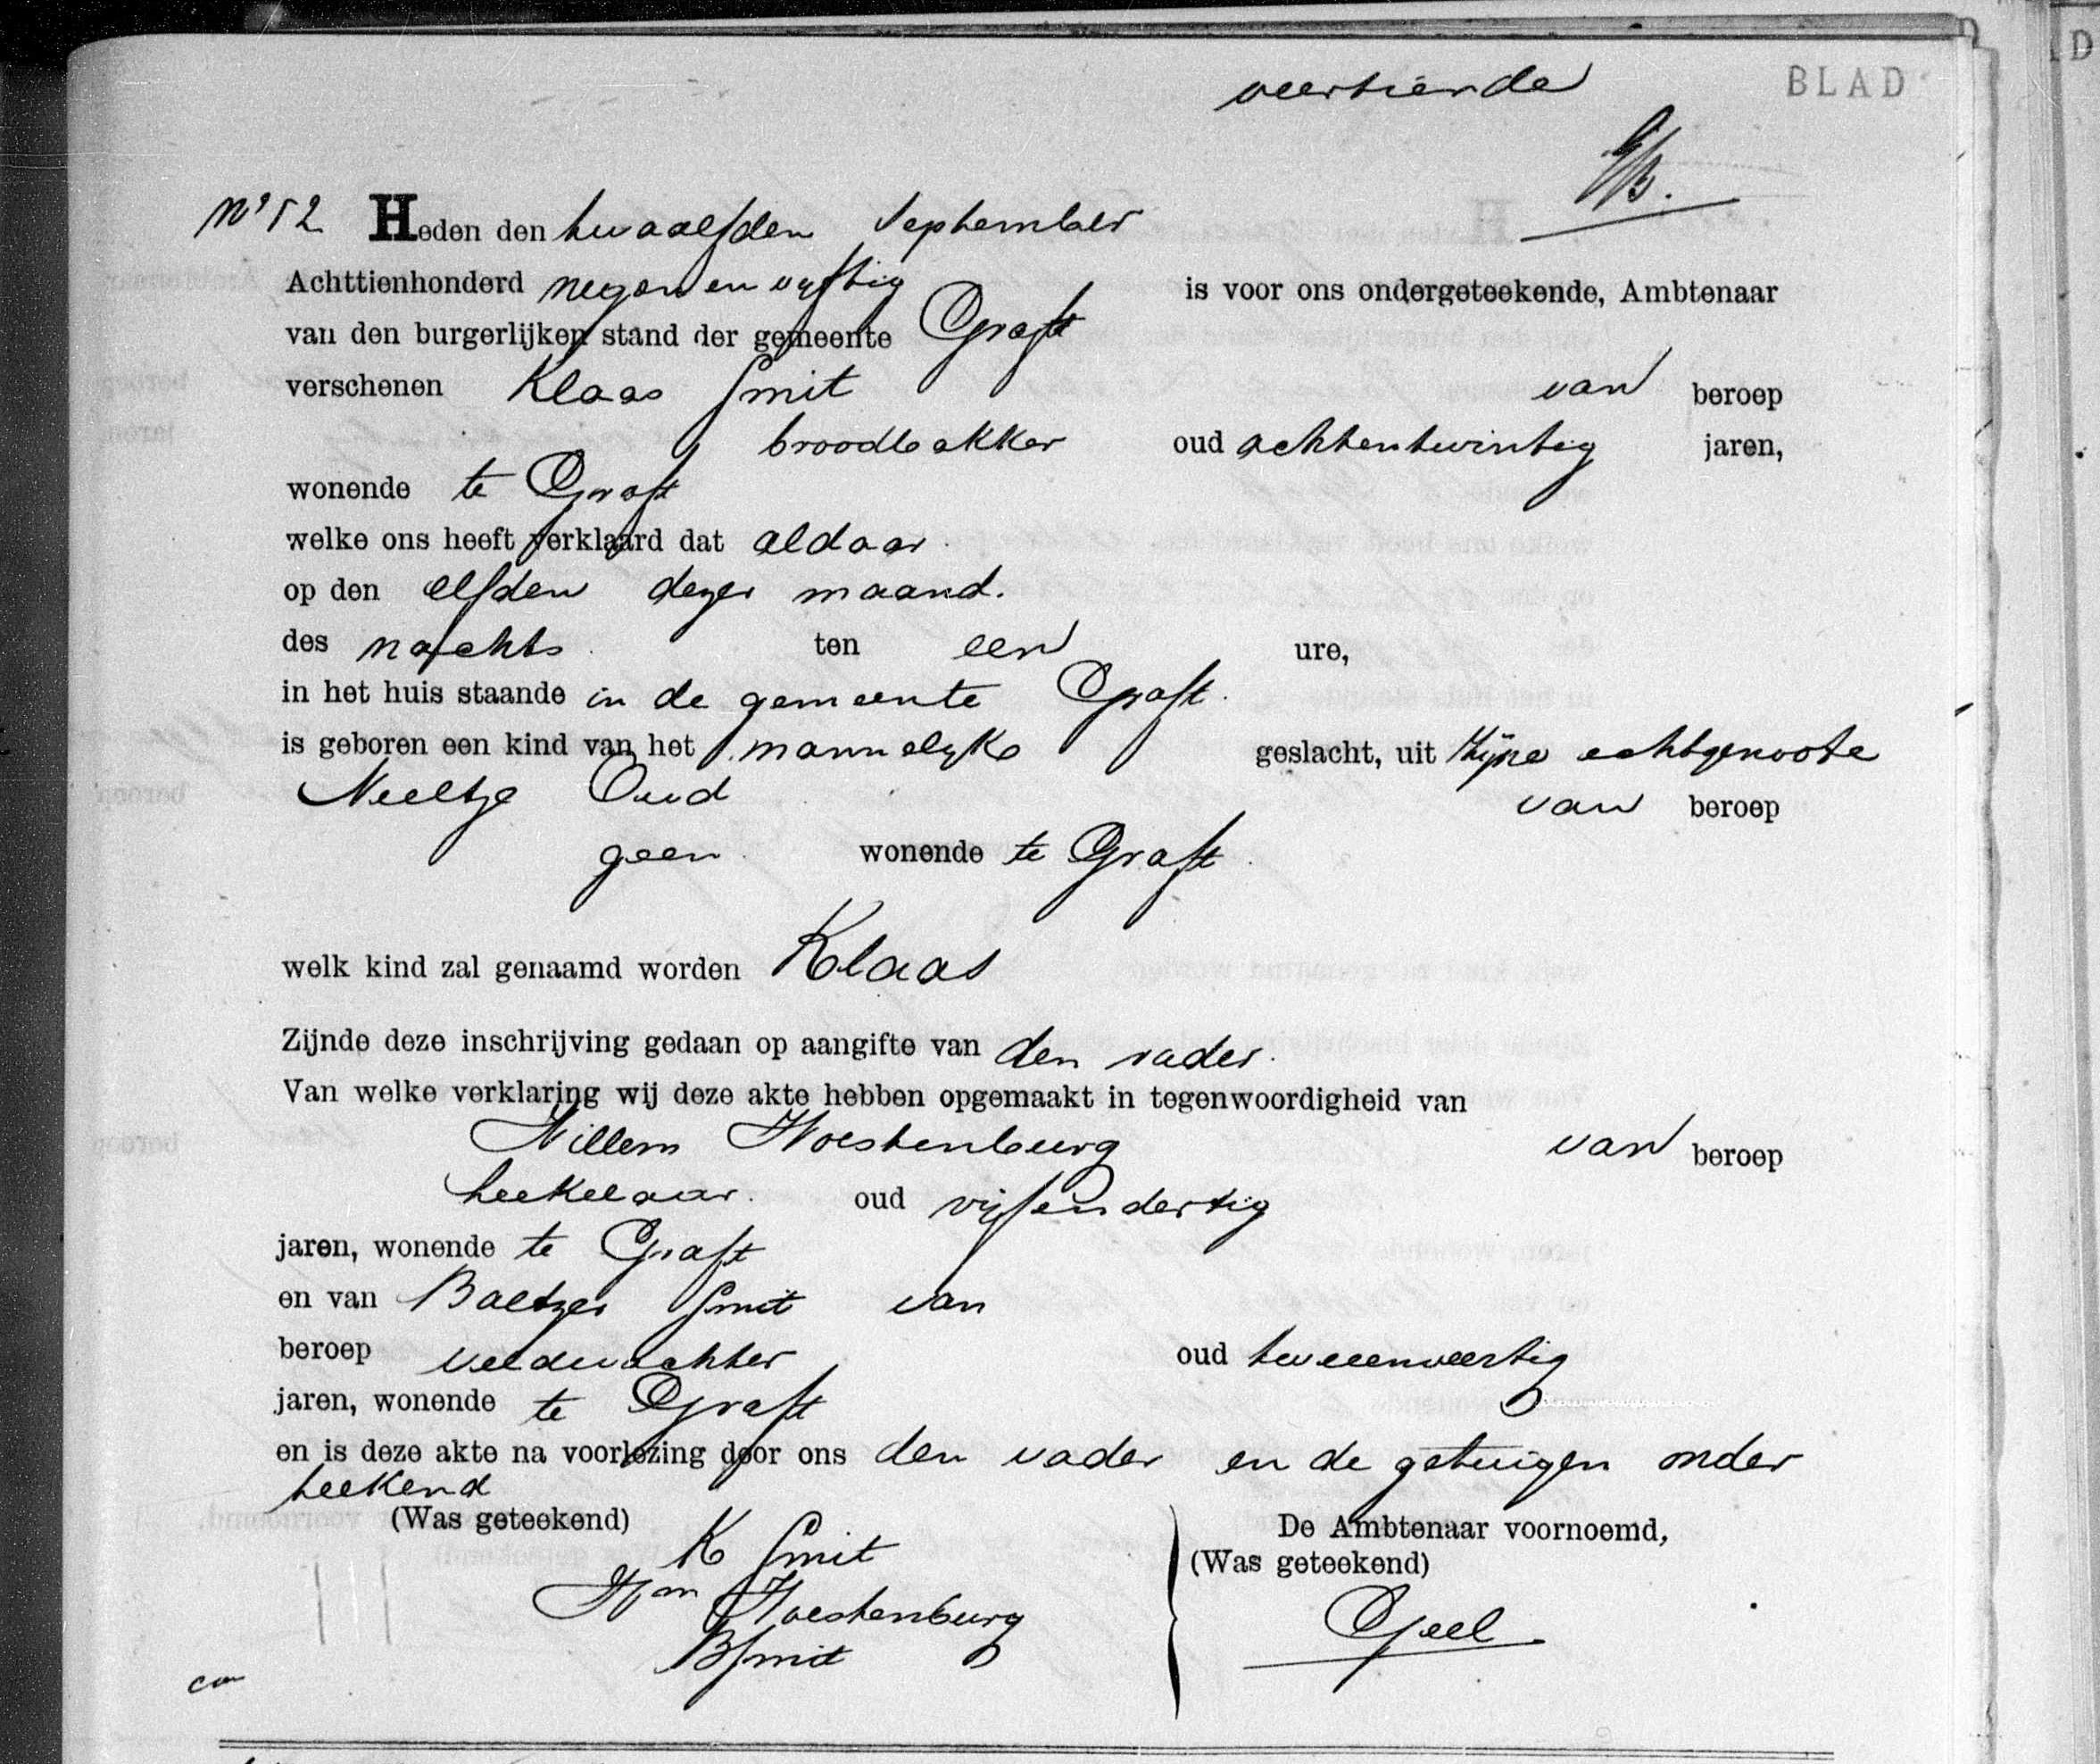 veertiende BLAD
No 52 Heden den twaalfden September
Achttienhonderd negen en vyftig is voor ons ondergeteekende, Ambtenaar
van den burgerlijken stand der gemeente Graft
verschenen Klaas Smit van beroep
broodbakker oud achtentwintig jaren,
wonende te Graft
welke ons heeft verklaard dat aldaar
op den elfden dezer maand.
des nachts ten een ure,
in het huis staande in de gemeente Graft.
is geboren een kind van het mannelyke geslacht, uit zijne echtgenoote
Neeltje Oud van beroep
geen wonende te Graft
welk kind zal genaamd worden Klaas
Zijnde deze inschrijving gedaan op aangifte van den vader.
Van welke verklaring wij deze akte hebben opgemaakt in tegenwoordigheid van
Willem Woestenburg van beroep
heekelaar. oud vijfendertig
jaren, wonende te Graft
en van Baltzer Smit van
beroep veldwachter oud tweeenveertig
jaren, wonende te Graft
en is deze akte na voorlezing door ons den vader en de getuigen onder
teekend
(Was geteekend) De Ambtenaar voornoemd,
K Smit (Was geteekend)
Wm Woestenburg Geel
B Smit